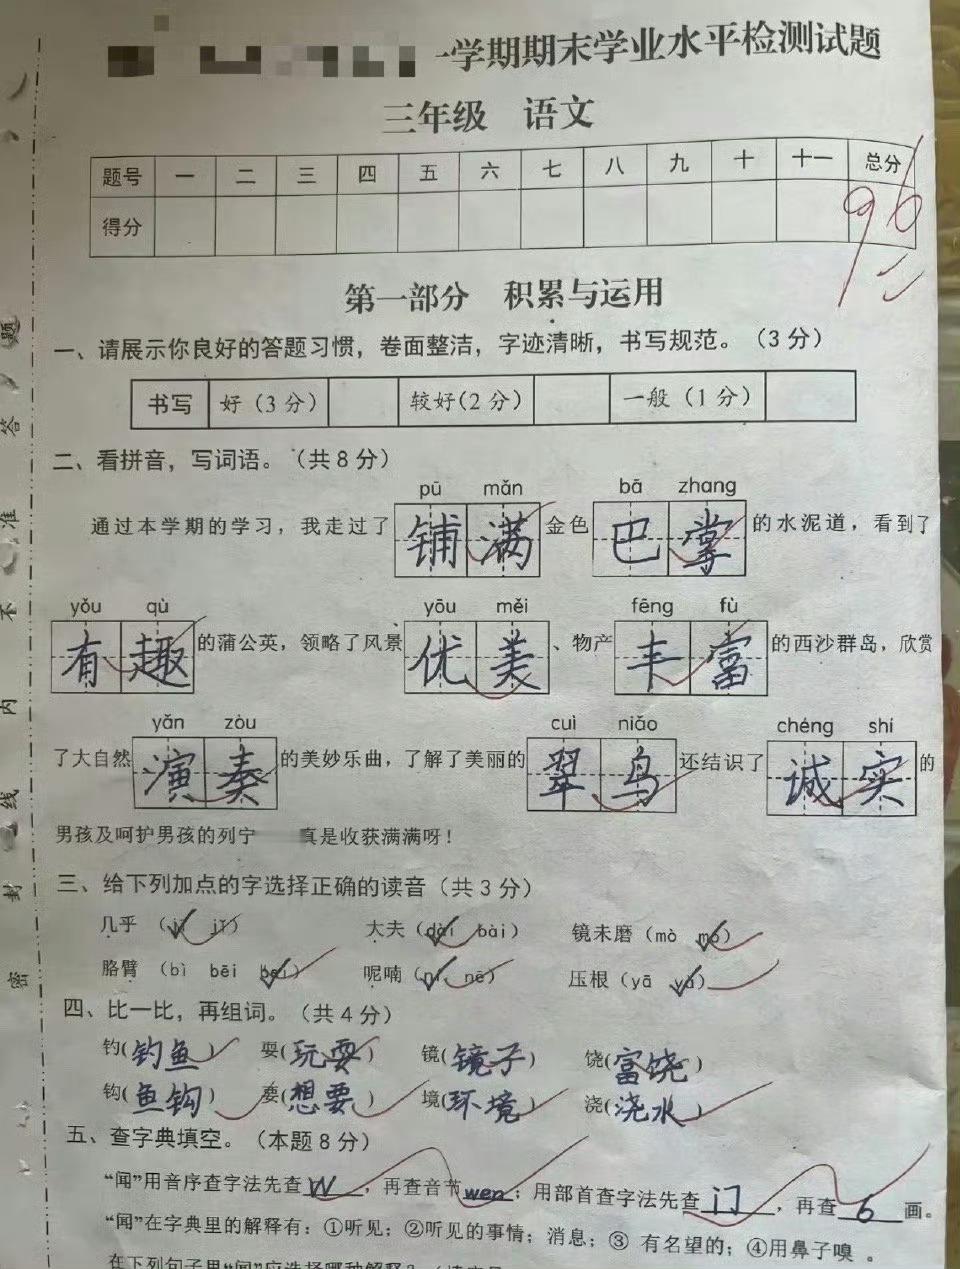 一学期期末学业水平检测试题
三年级 语文
题号 一 二 三 四 五 六 七 八 九 十 十一 总分
得分 96
第一部分 积累与运用
一、请展示你良好的答题习惯，卷面整洁，字迹清晰，书写规范。（3分）
书写 好（3分） 较好（2分） 一般（1分）
二、看拼音，写词语。（共8分）
pū mǎn bā zhang
通过本学期的学习，我走过了铺满金色巴掌的水泥道，看到了
yǒu qù yōu měi fēng fù
有趣的蒲公英，领略了风景优美、物产丰富的西沙群岛，欣赏
yǎn zòu cuì niǎo chéng shí
了大自然演奏的美妙乐曲，了解了美丽的翠鸟还结识了诚实的
男孩及呵护男孩的列宁 真是收获满满呀！
三、给下列加点的字选择正确的读音（共3分）
几乎（ jī） 大夫（dài bài） 镜未磨（mò mó）
胳臂（bì bēi bei） 呢喃（ní nē） 压根（yā yà）
四、比一比，再组词。（共4分）
钓（钓鱼） 耍（玩耍） 镜（镜子） 饶（富饶）
钩（鱼钩） 要（想要） 境（环境） 浇（浇水）
五、查字典填空。（本题8分）
“闻”用音序查字法先查W，再查音节wen；用部首查字法先查门，再查6画。
“闻”在字典里的解释有：①听见；②听见的事情；消息；③ 有名望的；④用鼻子嗅 。
在下列句子里“闻”应选择哪种解释？
密 封 线 内 不 准 答 题